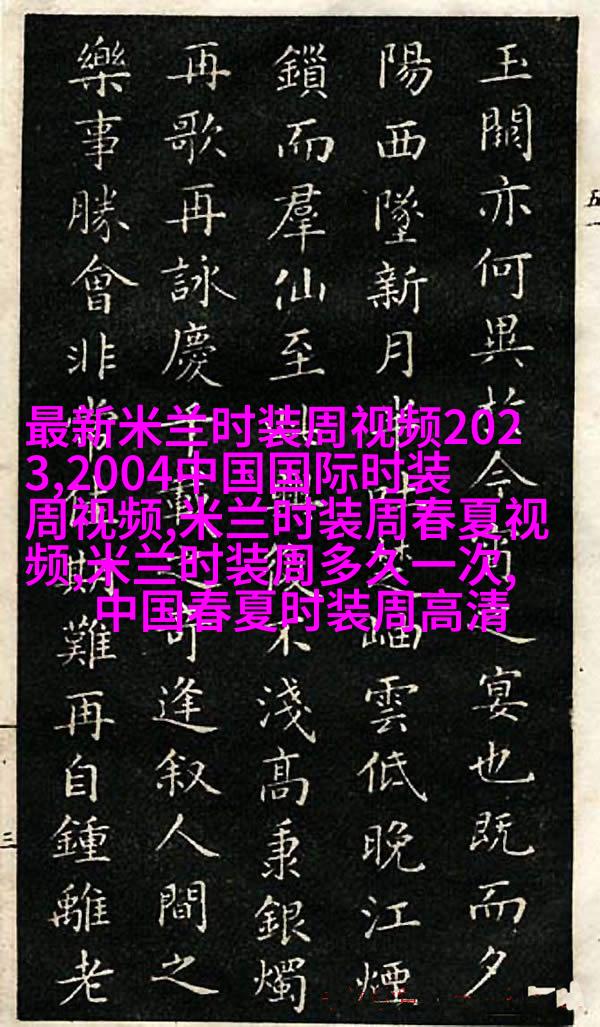 玉闕亦何異於今之宴也既而夕
陽西墜新月半吐岫雲低晚江煙
鎖而羣仙至興不淺高秉銀燭
再歌再詠慶千載之奇逢叙人間之
樂事勝會非常佳期難再自鍾離老
最新米兰时装周视频202
3,2004中国国际时装
周视频,米兰时装周春夏视
频,米兰时装周多久一次,
中国春夏时装周高清
五一
三